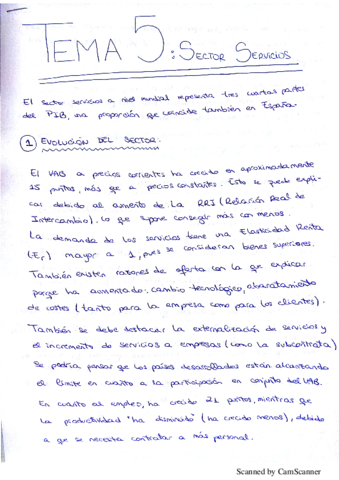 TEMA 5: SECTOR SERVICIOS
El sector servicios a nivel mundial representa tres cuartas partes
del PIB, una proporción que coincide también en España.
1 EVOLUCIÓN DEL SECTOR:
El VAB a precios corrientes ha crecido en aproximadamente
15 puntos, más que a precios constantes. Esto se puede expli-
car debido al aumento de La RRI (Relación Real de
Intercambio), lo que supone conseguir más con menos.
La demanda de los servicios tiene una Elasticidad Renta
(Er) mayor a 1, pues se consideran bienes superiores.
También existen razones de oferta con la que explicar
porque ha aumentado: cambio tecnológico, abaratamiento
de costes (tanto para la empresa como para los clientes).
También se debe destacar la externalización de servicios y
el incremento de servicios a empresas (como la subcontrata)
Se podría pensar que los países desarrollados están alcanzando
el límite en cuanto a la participación en conjunto del VAB.
En cuanto al empleo, ha crecido 21 puntos, mientras que
la productividad "ha disminuido" (ha crecido menos), debido
a que se necesita contratar a más personal.
Scanned by CamScanner